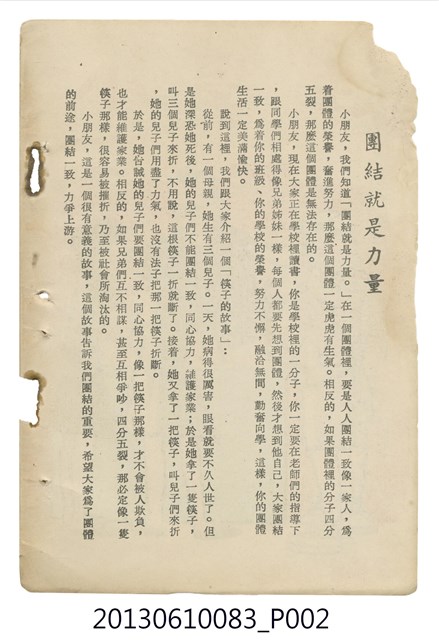 團結就是力量
小朋友，我們知道「團結就是力量。」在一個團體裡，要是人人團結一致像一家人，爲
着團體的榮譽，奮進努力，那麼這個團體一定虎虎有生氣。相反的，如果團體裡的分子四分
五裂，那麼這個團體是無法存在的。
小朋友，現在大家正在學校裡讀書，你是學校裡的一分子，你一定要在老師們的指導下
，跟同學們相處得像兄弟姊妹一樣，每個人都要先想到團體，然後才想到他自己，大家團結
一致，爲着你的班級、你的學校的榮譽，努力不懈，融洽無間，勤奮向學，這樣，你的團體
生活一定美滿愉快。
說到這裡，我們跟大家介紹一個「筷子的故事」：
從前，有一個母親，她生有三個兒子。一天，她病得很厲害，眼看就要不久人世了。但
是她深恐她死後，她的兒子們不能團結一致，同心協力，維護家業；於是她拿了一隻筷子，
叫三個兒子來折，不用說，這根筷子一折就斷了。接着，她又拿了一把筷子，叫兒子們來折
，她的兒子們用盡了力氣，也沒有法子把那一把筷子折斷。
於是，她告誡她的兒子們要團結一致，同心協力，像一把筷子那樣，才不會被人欺負，
也才能維護家業。相反的，如果兄弟們互不相謀，甚至互相爭吵，四分五裂，那必定像一隻
筷子那樣，很容易被摧折，乃至被社會所淘汰的。
小朋友，這是一個很有意義的故事，這個故事告訴我們團結的重要，希望大家爲了團體
的前途，團結一致，力爭上游。
20130610083_P002